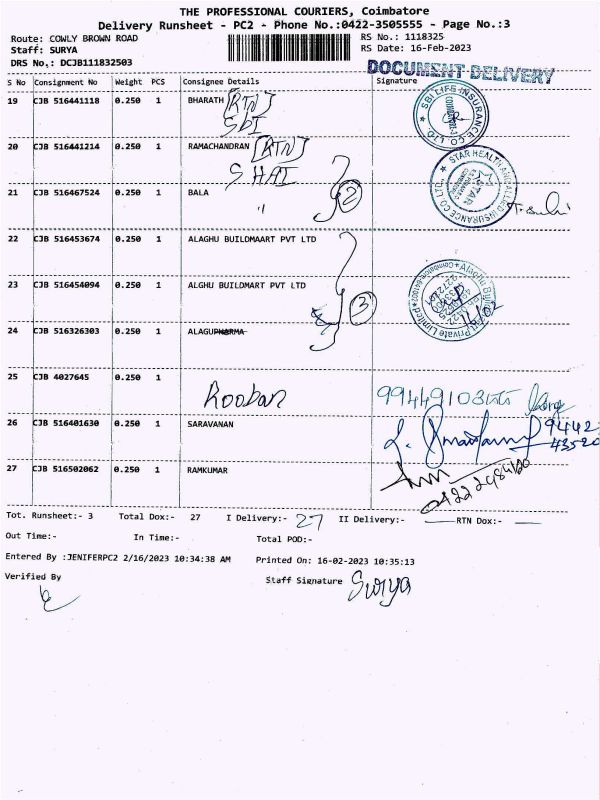 THE PROFESSIONAL COURIERS, Coimbatore
Delivery Runsheet - PC2 - Phone No.:0422-3505555 - Page No.:3
Route: COWLY BROWN ROAD RS No.: 1118325
Staff: SURYA RS Date: 16-Feb-2023
DRS No.: DCJB111832503
DOCUMENT DELIVERY
S No Consignment No Weight PCS Consignee Details Signature
19 CJB 516441118 0.250 1 BHARATH [RTN]
SBI
SBI LIFE INSURANCE CO LTD.
20 CJB 516441214 0.250 1 RAMACHANDRAN [RTN]
SHAI
STAR HEALTH AND ALLIED INSURANCE CO LTD.
STAR
21 CJB 516467524 0.250 1 BALA
" 2
22 CJB 516453674 0.250 1 ALAGHU BUILDMAART PVT LTD
23 CJB 516454094 0.250 1 ALGHU BUILDMART PVT LTD
3
Private Limited
16/02
24 CJB 516326303 0.250 1 ALAGUPHARMA
25 CJB 4027645 0.250 1
Rooban
26 CJB 516401630 0.250 1 SARAVANAN 9442
43520
27 CJB 516502062 0.250 1 RAMKUMAR
Tot. Runsheet:- 3 Total Dox:- 27 I Delivery:- 27 II Delivery:- RTN Dox:-
Out Time:- In Time:- Total POD:-
Entered By :JENIFERPC2 2/16/2023 10:34:38 AM Printed On: 16-02-2023 10:35:13
Verified By Staff Signature Surya